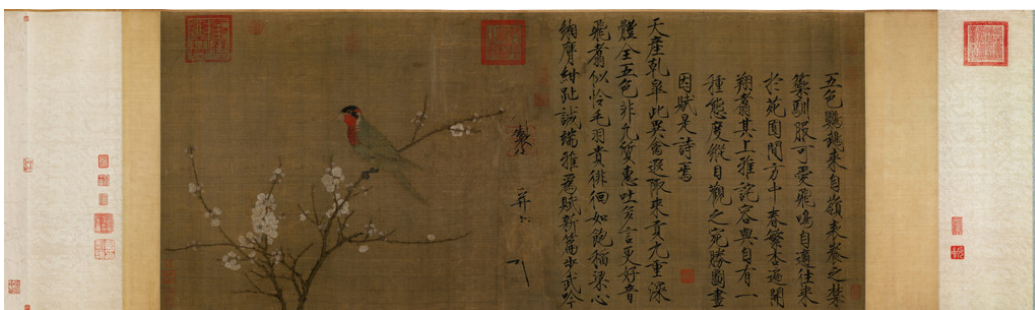 五色鸚鵡來自嶺表養之禁
籞馴服可愛飛鳴自適往來
於苑囿間方中春繁杏遍開
翔翥其上雅詫容與自有一
種態度縱目觀之宛勝圖畫
因賦是詩焉
天產乾皋此異禽遐陬來貢九重深
體全五色非凡質惠吐多言更好音
飛翥似憐毛羽貴徘徊如飽稻粱心
緗膺紺趾誠端雅為賦新篇步武吟
製
并書